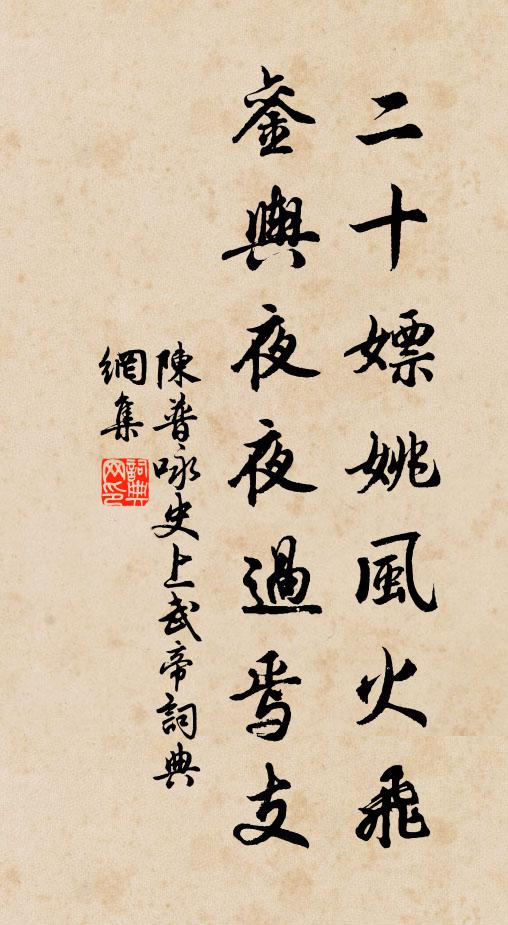 二十嫖姚風火飛
鑾輿夜夜過焉支
陳普咏史上武帝詞典
網集
詞典
网印